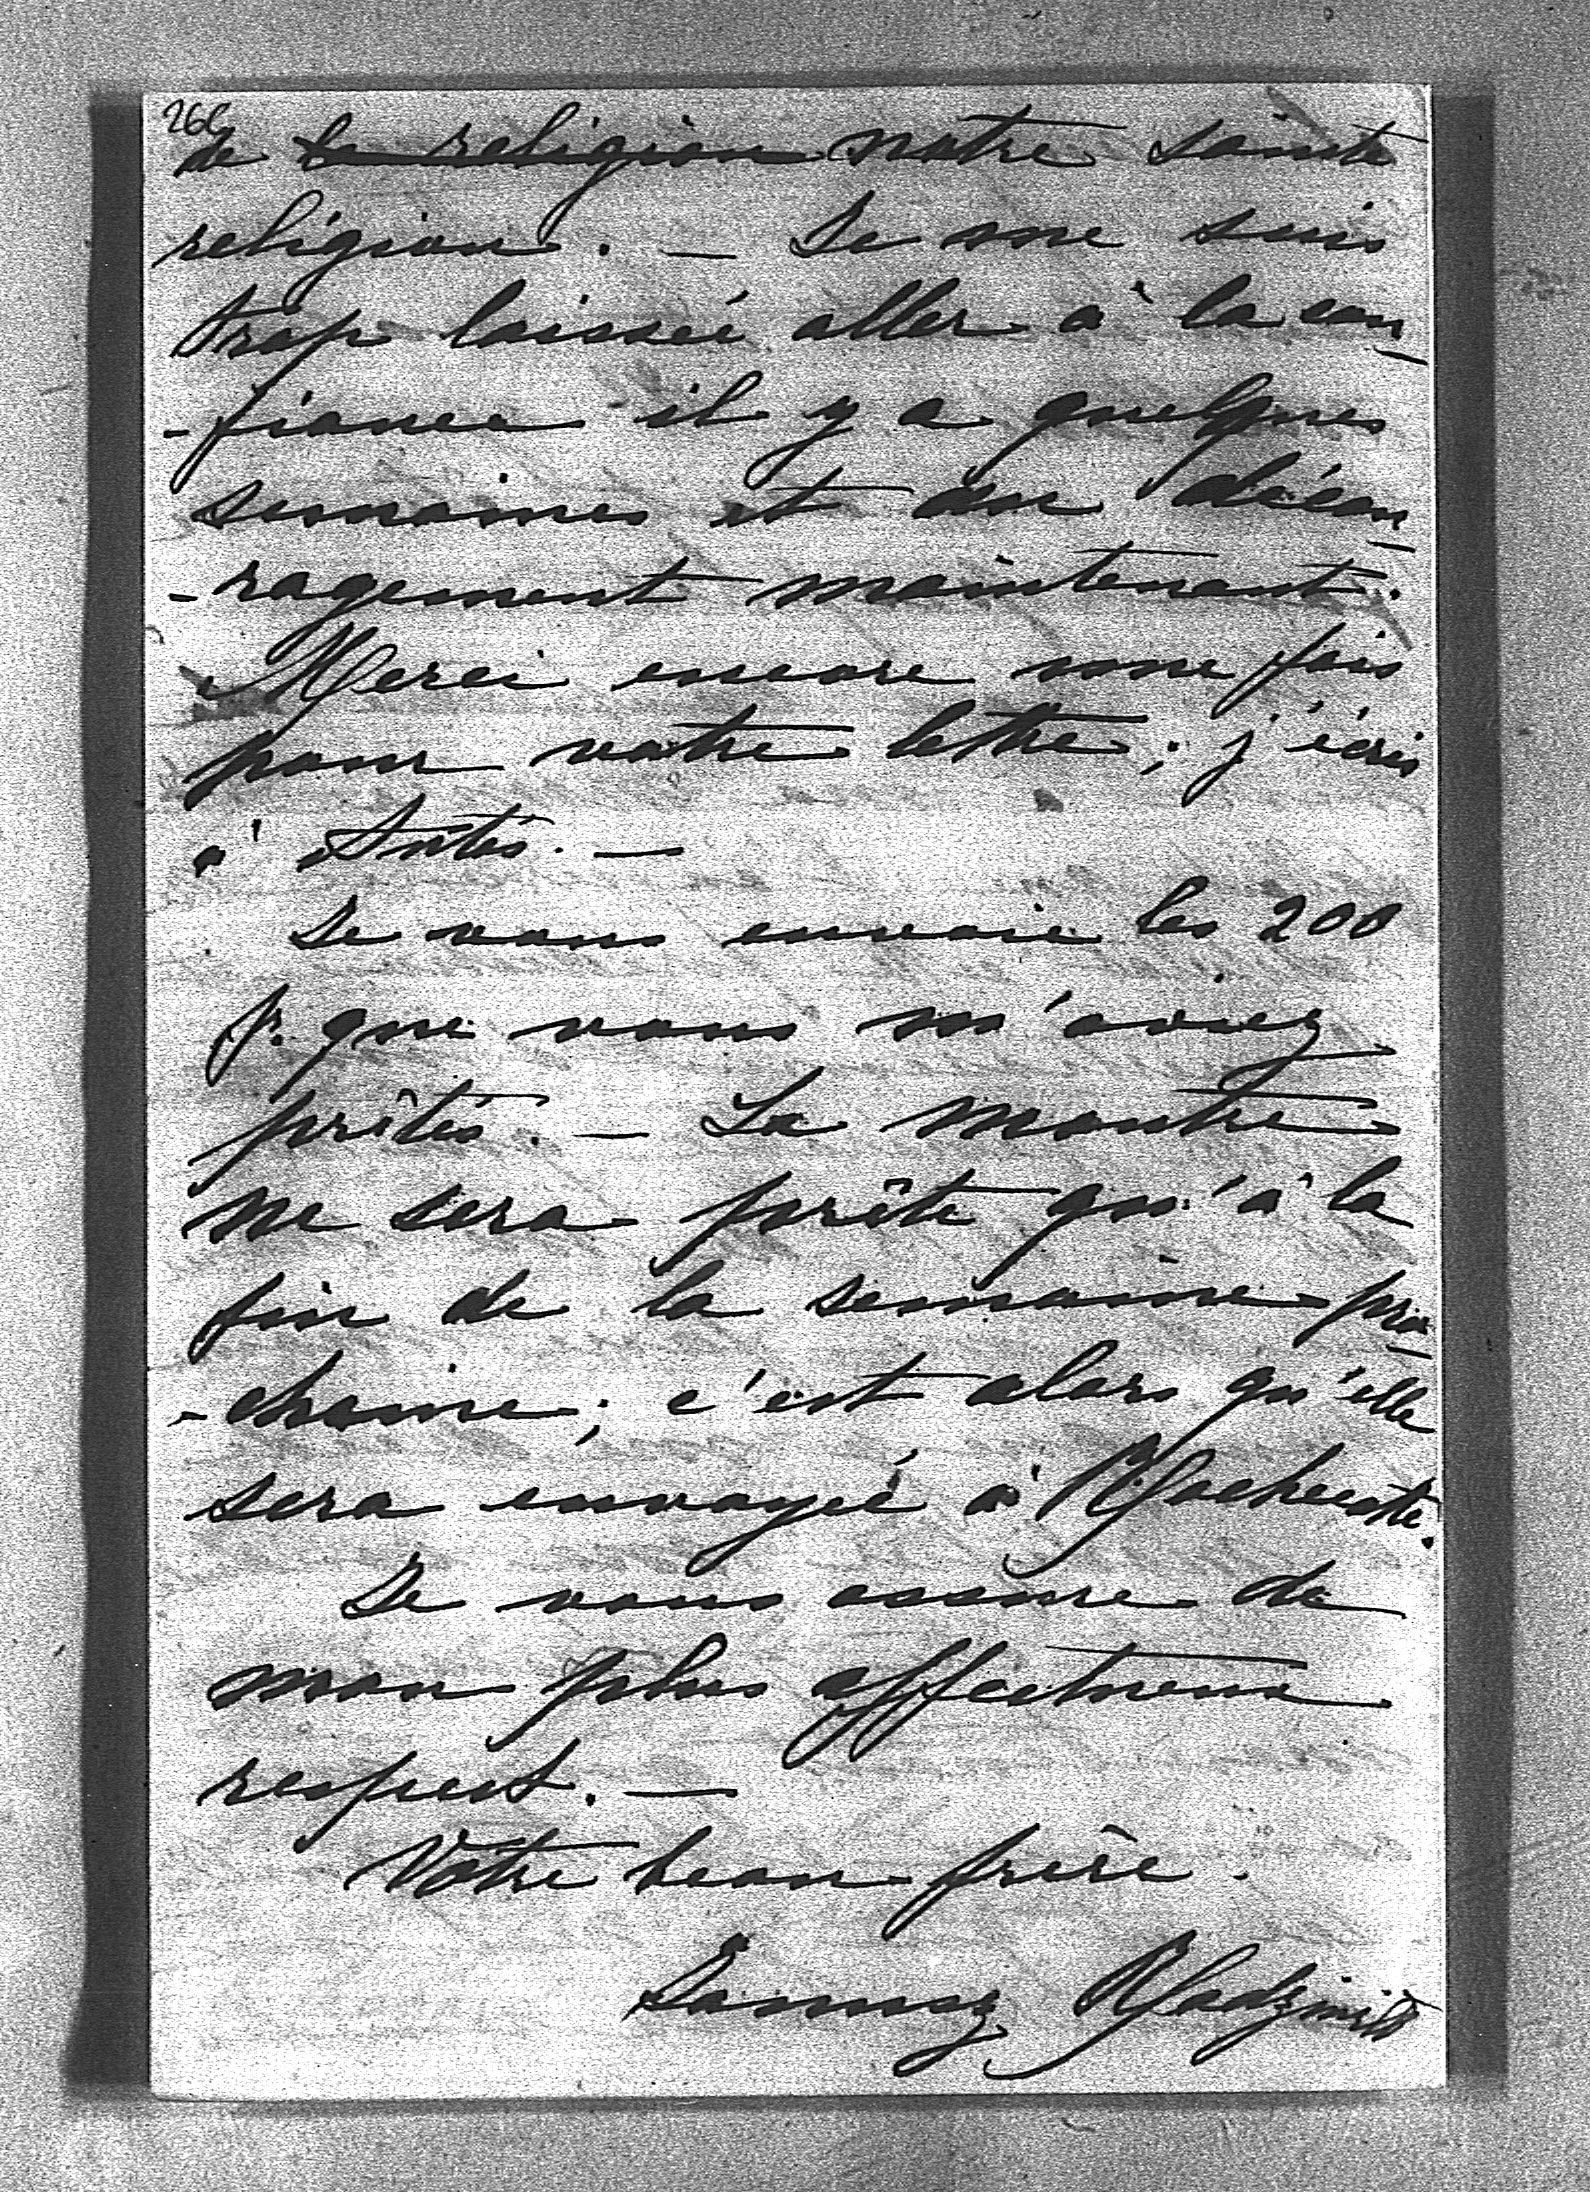 266
de la religion notre sainte
religion. — Je me suis
trop laissé aller à la con-
-fiance il y a quelques
semaines et au décou-
-ragement maintenant.
Merci encore une fois
pour votre lettre ; j'écris
à Antés. —
Je vous envoie les 200
fr. que vous m'aviez
prêtés. — La montre
ne sera prête qu'à la
fin de la semaine pro-
-chaine ; c'est alors qu'elle
sera envoyée à
Je vous assure de
mon plus affectueux
respect. —
Votre beau frère.
Janusz Radziwill